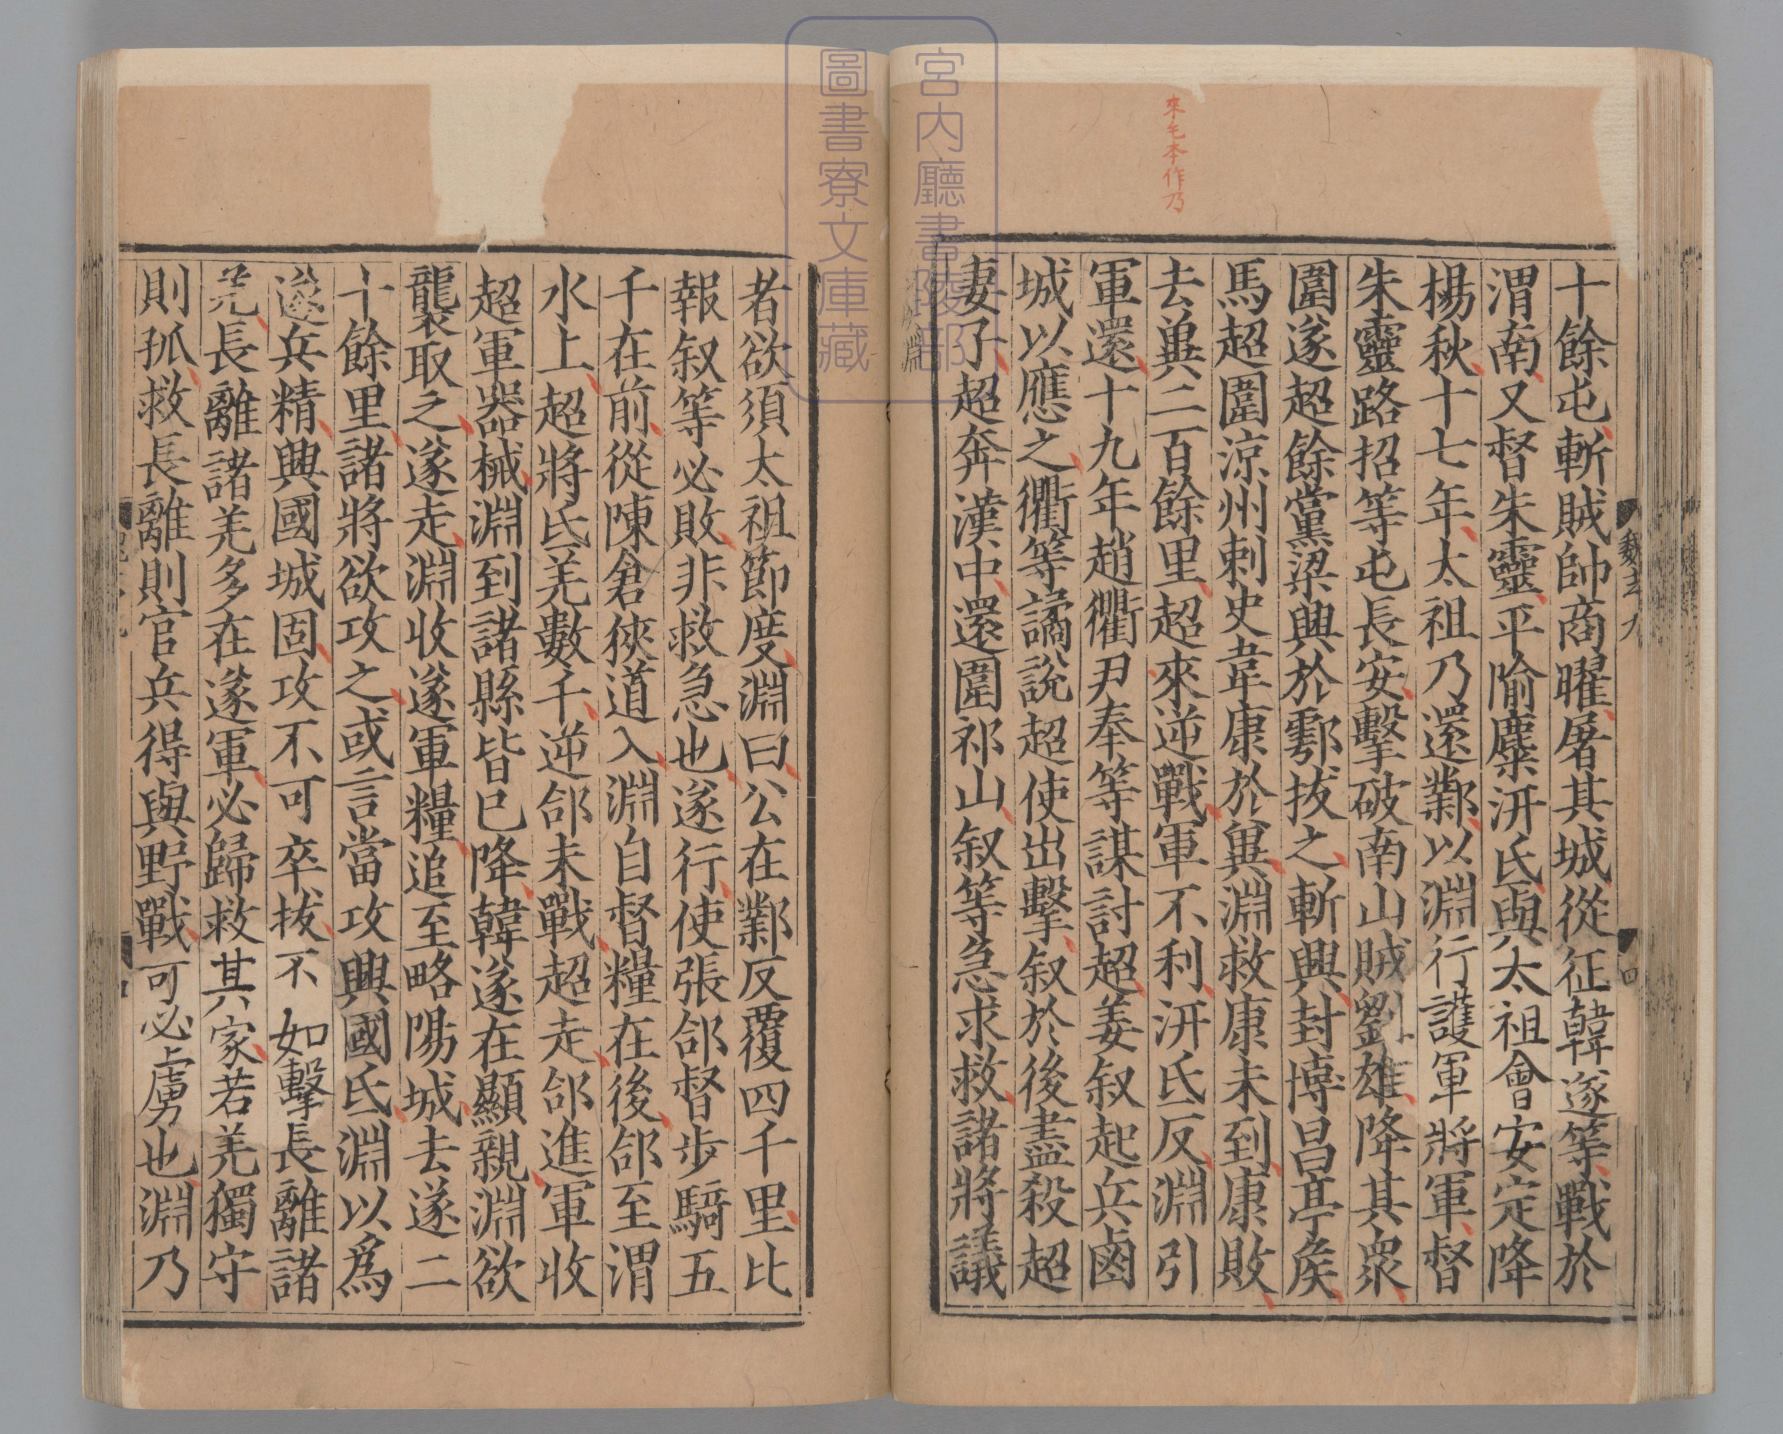 來毛本作乃
十餘屯斬賊帥商曜屠其城從征韓遂等戰於
渭南又督朱靈平隃麋汧氐與太祖會安定降
楊秋十七年太祖乃還鄴以淵行護軍將軍督
朱靈路招等屯長安擊破南山賊劉雄降其衆
圍遂超餘黨梁興於鄠拔之斬興封博昌亭矦
馬超圍涼州刺史韋康於兾淵救康未到康敗
去兾二百餘里超來逆戰軍不利汧氐反淵引
軍還十九年趙衢尹奉等謀討超姜叙起兵鹵
城以應之衢等譎說超使出擊叙於後盡殺超
妻子超奔漢中還圍祁山叙等急求救諸將議
者欲須太祖節度淵曰公在鄴反覆四千里比
報叙等必敗非救急也遂行使張郃督步騎五
千在前從陳倉狹道入淵自督糧在後郃至渭
水上超將氐羌數千逆郃未戰超走郃進軍收
超軍器械淵到諸縣皆已降韓遂在顯親淵欲
襲取之遂走淵收遂軍糧追至略陽城去遂二
十餘里諸將欲攻之或言當攻興國氐淵以為
遂兵精興國城固攻不可卒拔不如擊長離諸
羌長離諸羌多在遂軍必歸救其家若羌獨守
則孤救長離則官兵得與野戰可必虜也淵乃
魏志九
四
宮內廳書陵部
圖書寮文庫藏